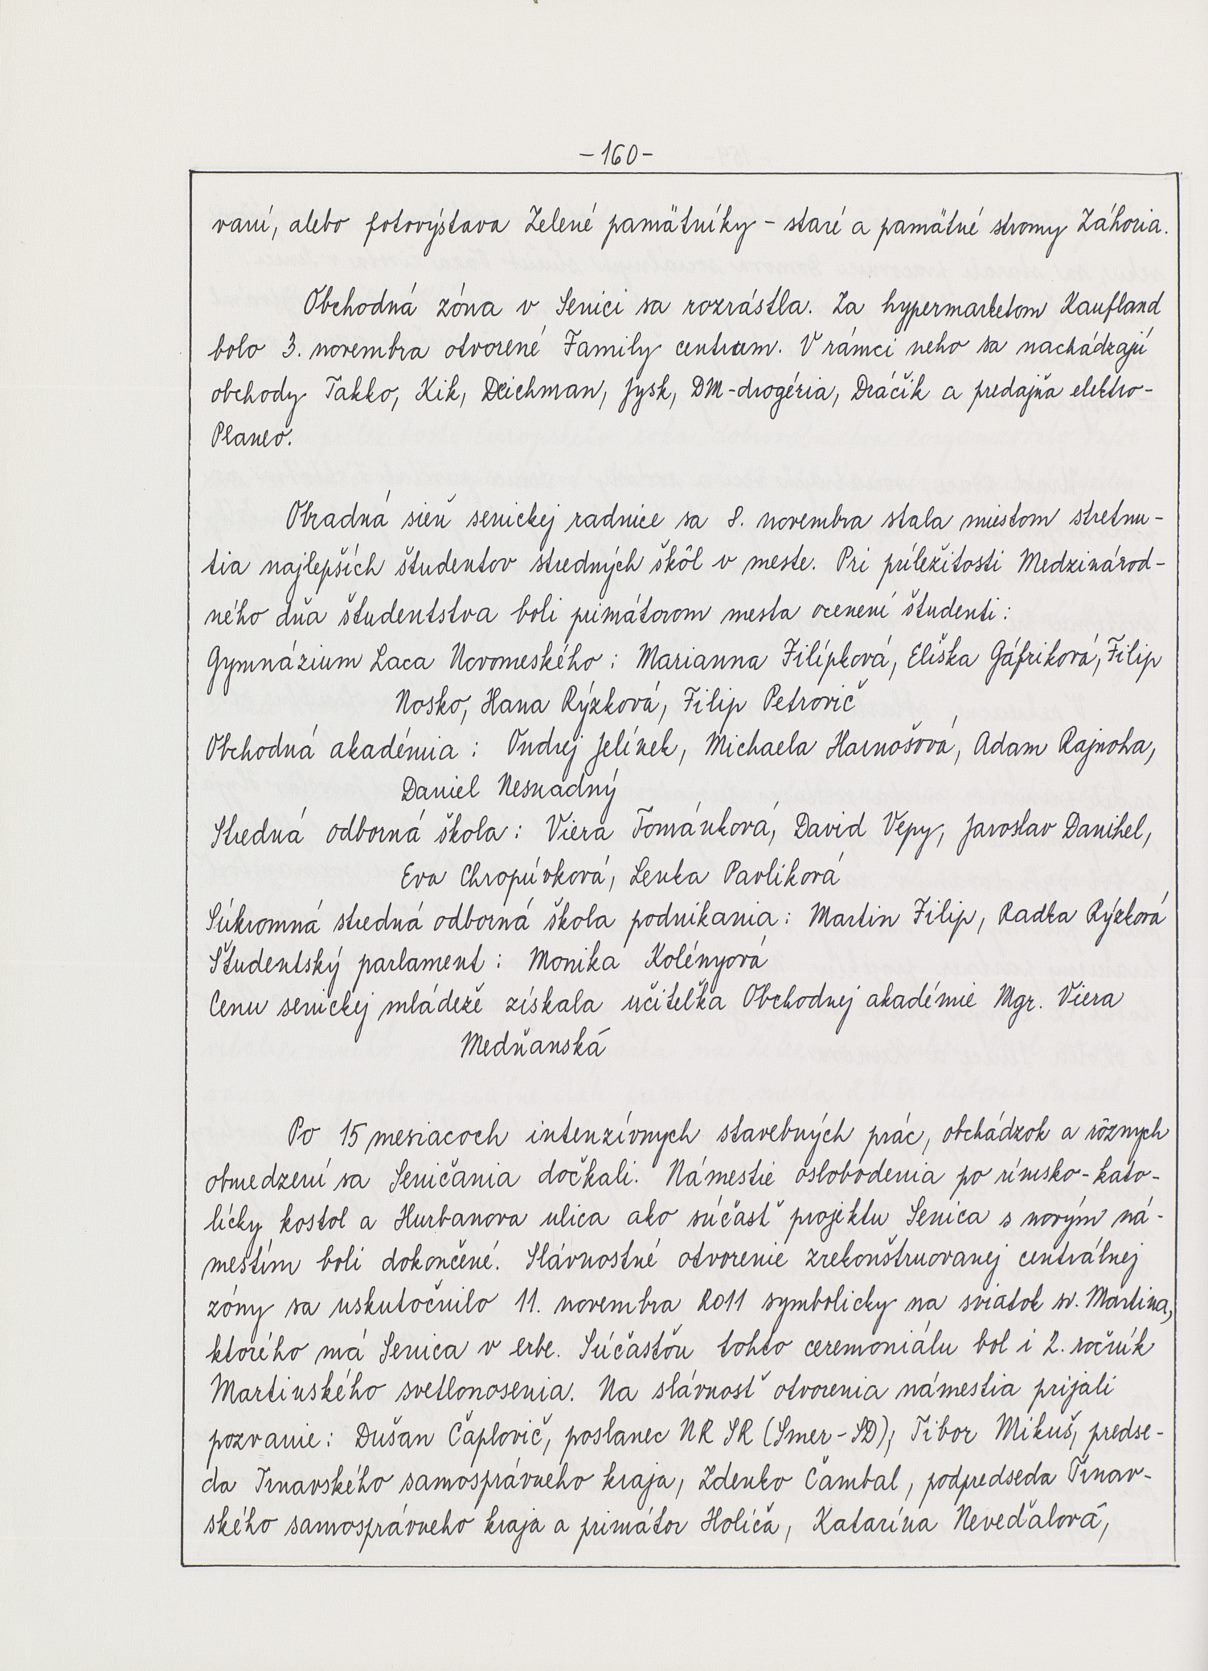 -160-
vaní, alebo fotovýstava Zelené pamätníky - staré a pamätné stromy Záhoria.
Obchodná zóna v Senici sa rozrástla. Za hypermarketom Kaufland
bolo 3. novembra otvorené Family centrum. V rámci neho sa nachádzajú
obchody Takko, Kik, Deichman, Jysk, DM-drogéria, Dráčik a predajňa elektro-
Planeo.
Obradná sieň senickej radnice sa 8. novembra stala miestom stretnu-
tia najlepších študentov stredných škôl v meste. Pri príležitosti Medzinárod-
ného dňa študentstva boli primátorom mesta ocenení študenti:
Gymnázium Laca Novomeského: Marianna Filípková, Eliška Gáfriková, Filip
Nosko, Hana Rýzková, Filip Petrovič
Obchodná akadémia: Ondrej Jelínek, Michaela Harnošová, Adam Rajnoha,
Daniel Nesnadný
Stredná odborná škola: Viera Tománková, David Vépy, Jaroslav Danihel,
Eva Chropúvková, Lenka Pavlíková
Súkromná stredná odborná škola podnikania: Martin Filip, Radka Rýzková
Študentský parlament: Monika Kolényová
Cenu senickej mládeže získala učiteľka Obchodnej akadémie Mgr. Viera
Medňanská
Po 15 mesiacoch intenzívnych stavebných prác, obchádzok a rôznych
obmedzení sa Seničania dočkali. Námestie oslobodenia po rímsko-kato-
lícky kostol a Hurbanova ulica ako súčasť projektu Senica s novým ná-
mestím boli dokončené. Slávnostné otvorenie zrekonštruovanej centrálnej
zóny sa uskutočnilo 11. novembra 2011 symbolicky na sviatok sv. Martina,
ktorého má Senica v erbe. Súčasťou tohto ceremoniálu bol i 2. ročník
Martinského svetlonosenia. Na slávnosť otvorenia námestia prijali
pozvanie: Dušan Čaplovič, poslanec NR SR (Smer-SD), Tibor Mikuš, predse-
da Trnavského samosprávneho kraja, Zdenko Čambal, podpredseda Trnav-
ského samosprávneho kraja a primátor Holíča, Katarína Neveďalová,